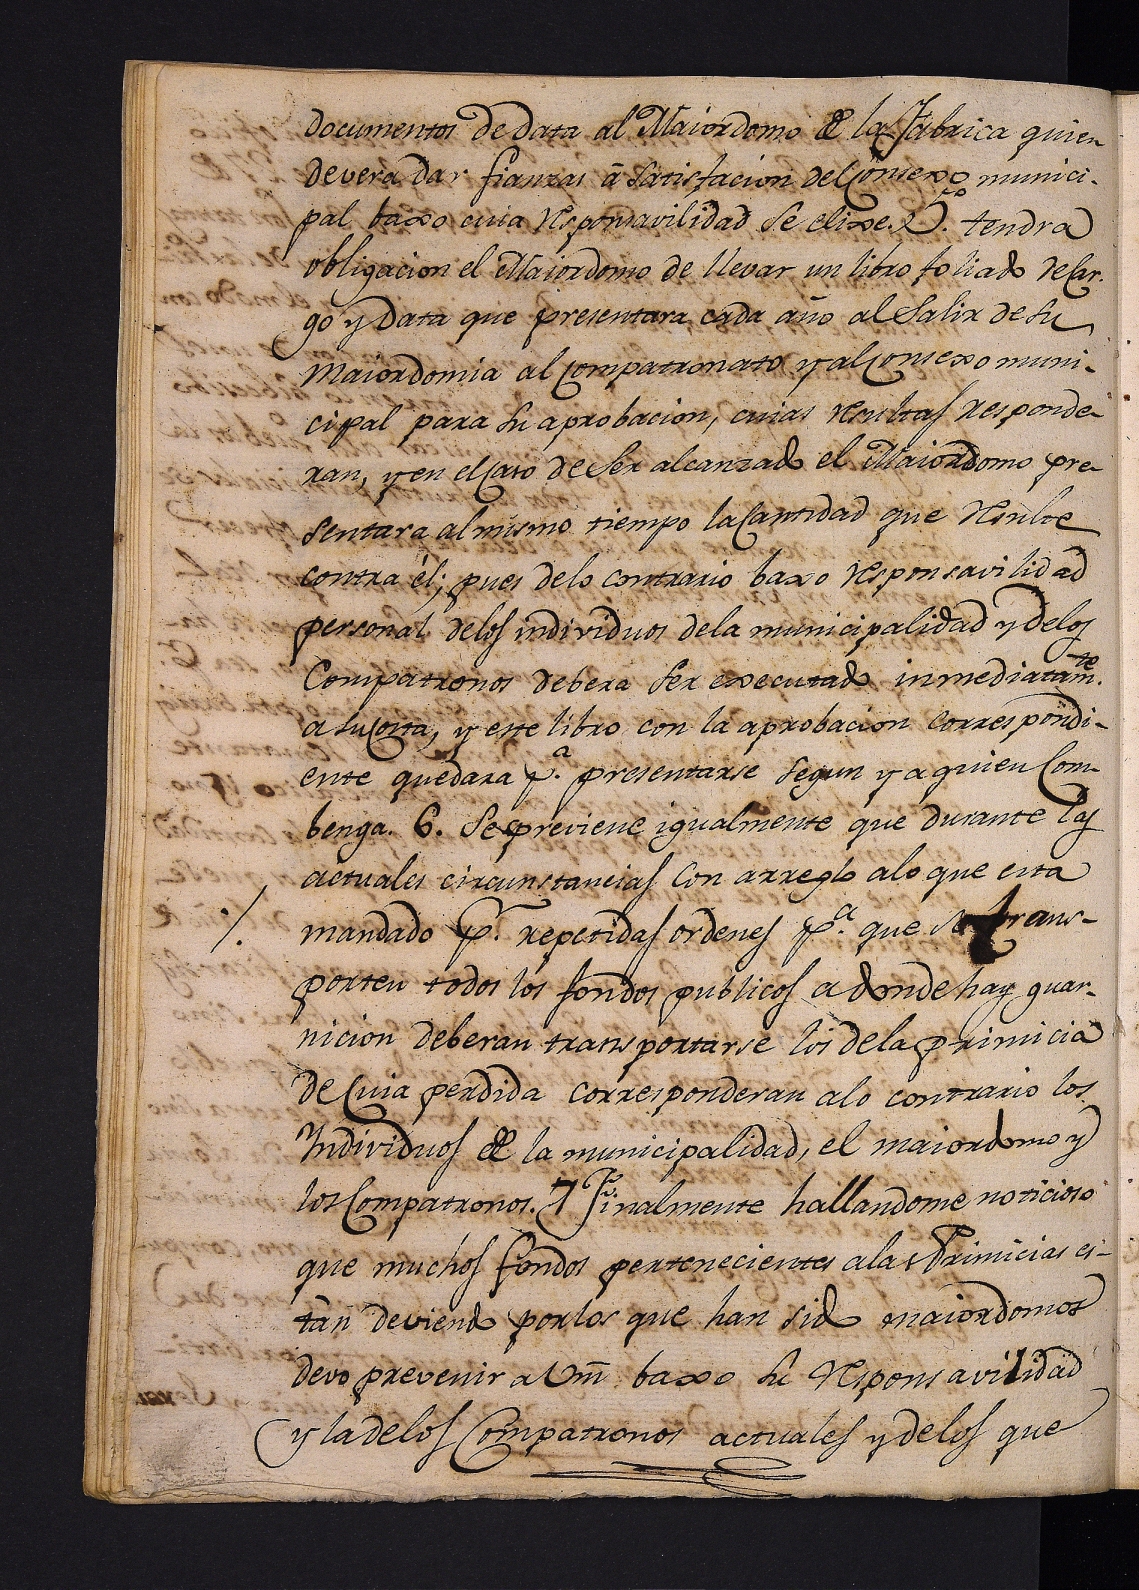 documentos de data al Maiordomo de la Fabrica quien
devera dar fianzas â satisfacion del Consexo munici-
pal baxo cuia responsavilidad se elixe. 5.º tendra
obligacion el Maiordomo de llevar un libro foliado de Car-
go y Data que presentara cada año al Salir de su
Maiordomia al Compatronato y al Consexo muni-
cipal para su aprobacion, cuias resultas responde-
ran, y en el Caso de Ser alcanzado el Maiordomo pre-
sentara al mismo tiempo la Cantidad que resulte
contra él; pues de lo contrario baxo responsavilidad
personal de los individuos de la municipalidad y de los
Compatronos debera Ser executado inmediatam.te
a su Costa, y este libro con la aprobacion correspondi-
ente quedara p.a presentarse Segun y a quien Com-
benga. 6. Se previene igualmente que durante las
actuales circunstancias con arreglo a lo que esta
./. mandado p.r repetidas ordenes p.a que se trans-
porten todos los fondos publicos a donde hay guar-
nicion deberan transportarse los de la primicia
de Cuia perdida corresponderan a lo contrario los
Individuos de la municipalidad, el maiordomo y
los Compatronos. 7.º Finalmente hallandome noticioso
que muchos fondos pertenecientes a las Primicias es-
tàn deviendo por los que han sido maiordomos
devo prevenir a Vm̃ baxo su responsavilidad
y la de los Compatronos actuales y de los que